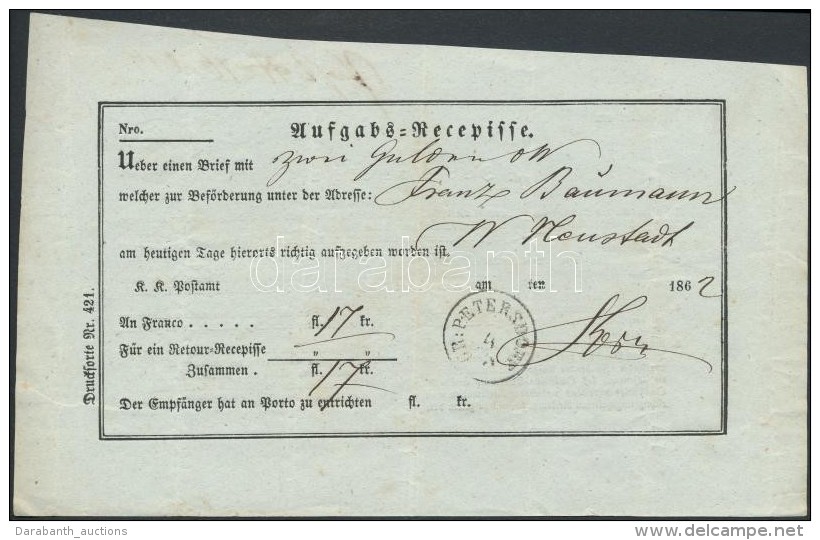 Nro.
Aufgabs-Recepisse.
Ueber einen Brief mit zwei Gulden öW
welcher zur Beförderung unter der Adresse: Franz Baumann
W Neustadt
am heutigen Tage hierorts richtig aufgegeben worden ist.
K. K. Postamt am ten 1862
An Franco . . . . . fl. 17 kr.
Für ein Retour-Recepisse " "
Zusammen . fl. 17 kr.
Der Empfänger hat an Porto zu entrichten fl. kr.
Drucksorte Nr. 421.
GR: PETERSDORF
4
darabanth
Darabanth_auctions
www.delcampe.net